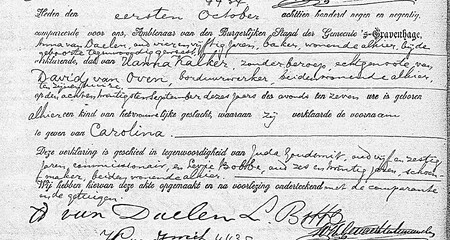 Heden den eersten October achttien honderd negen en negentig,
compareerde voor ons, Ambtenaar van den Burgerlijken Stand der Gemeente 's-Gravenhage,
Anna van Daelen, oud vier en vijftig jaren, baker, wonende alhier, bij de
geboorte tegenwoordig geweest,
verklarende, dat van Hanna Kalker, zonder beroep, echtgenoote van
David van Oven, borduurwerker, beiden wonende alhier,
te zijnen huize,
op den acht en twintigsten September dezes jaars des avonds ten zeven ure is geboren
alhier een kind van het vrouwelijke geslacht, waaraan zij verklaarde de voornaam
te geven van Carolina.
Deze verklaring is geschied in tegenwoordigheid van Juda Goudsmit, oud vijf en zestig
jaren, commissionair, en Levie Bobbe, oud zes en twintig jaren, schoen-
maker, beiden wonende alhier.
Wij hebben hiervan deze akte opgemaakt en na voorlezing onderteekend met de comparante
en de getuigen.
A van Daelen L. Bobbe